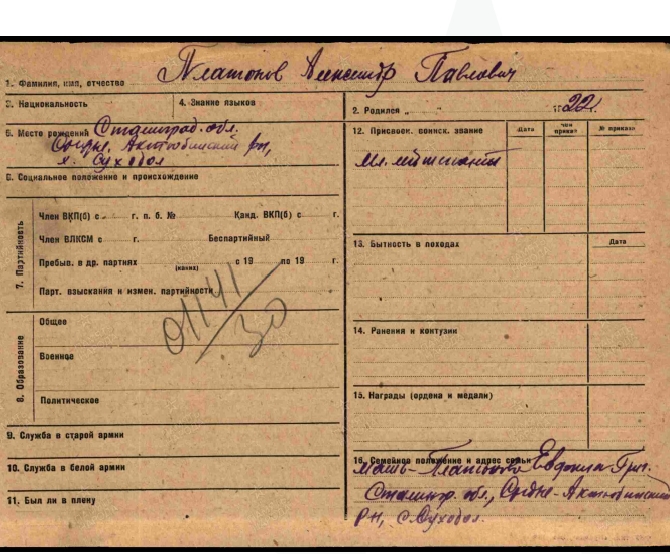 1. Фамилия, имя, отчество Платонов Александр Павлович
3. Национальность
4. Знание языков
5. Место рождения Сталинград. обл.
Средне-Ахтубинский рн,
х. Суходол
6. Социальное положение и происхождение
7. Партийность
Член ВКП(б) с г. п. б. № Канд. ВКП(б) с г.
Член ВЛКСМ с г. Беспартийный
Пребыв. в др. партиях с 19 по 19 г.
(каких)
Парт. взыскания и измен. партийности
01141/30
8. Образование
Общее
Военное
Политическое
9. Служба в старой армии
10. Служба в белой армии
11. Был ли в плену
2. Родился „ “ 1922г.
12. Присвоен. воинск. звание Дата чей приказ № приказа
Мл. лейтенант
13. Бытность в походах Дата
14. Ранения и контузии
15. Награды (ордена и медали)
16. Семейное положение и адрес семьи
Мать - Платонова Григ.
Сталингр. обл., Средне-Ахтюбинский
р-н, с. Суходол.